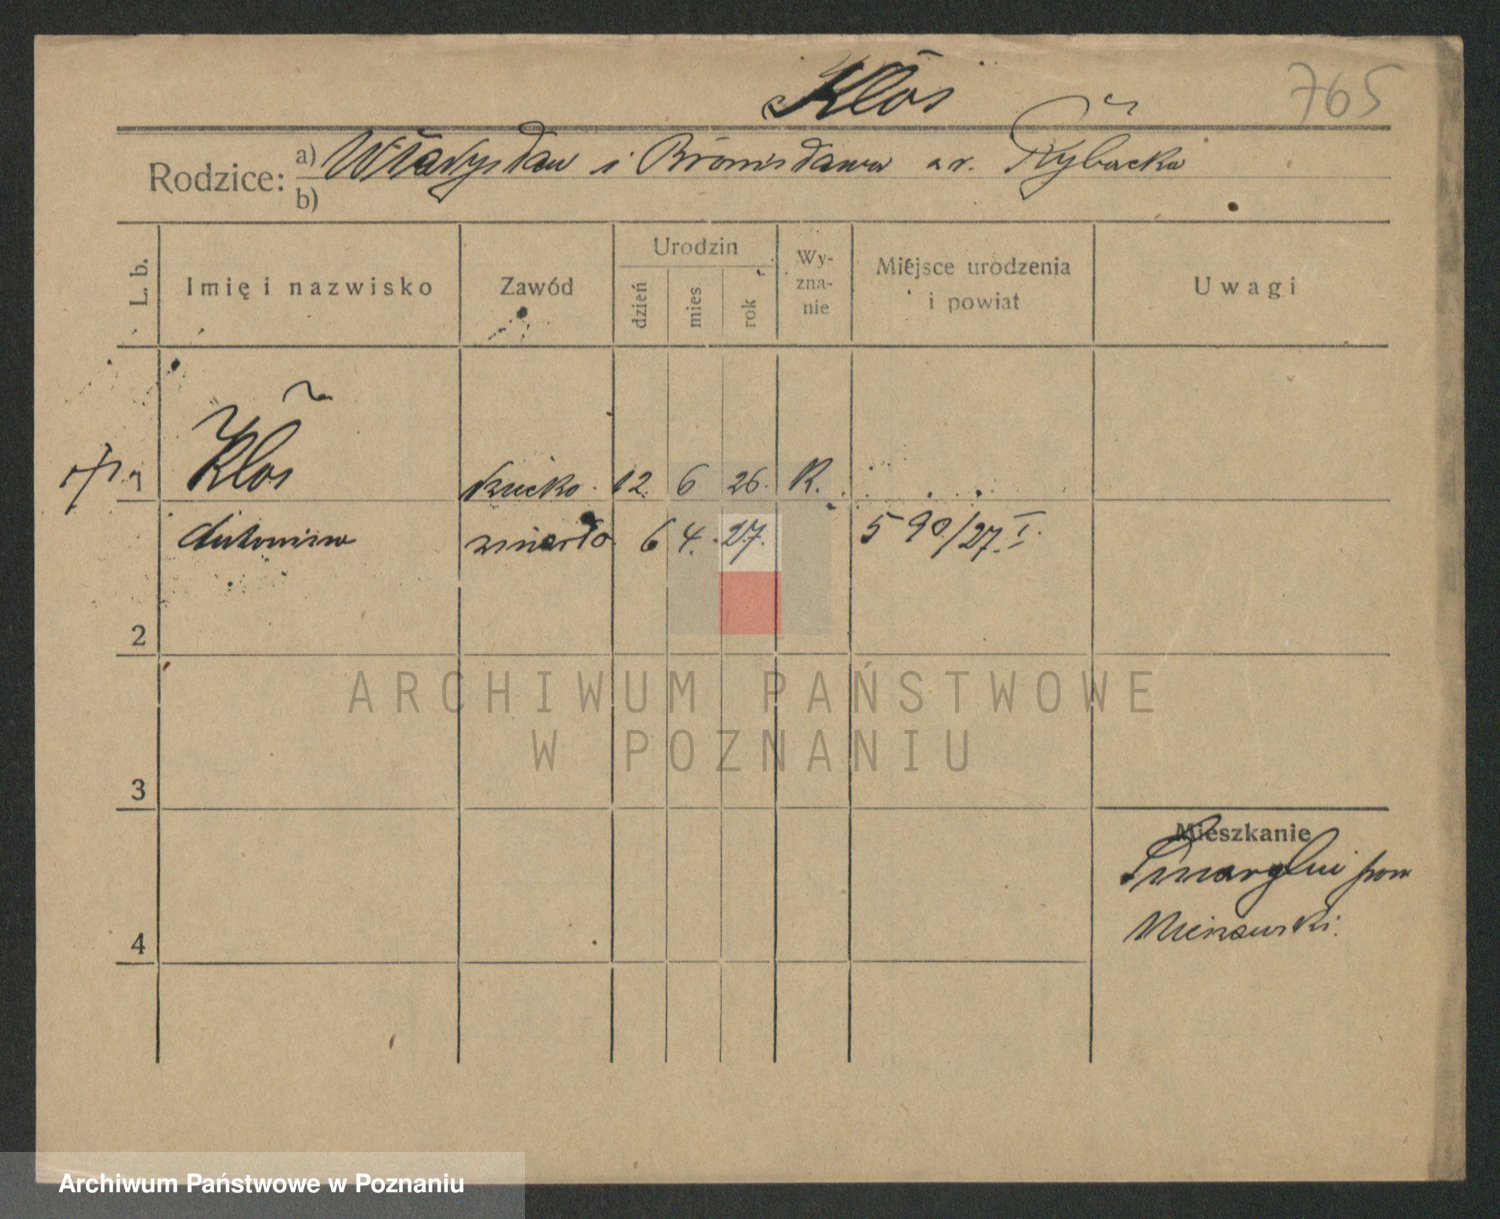 Kłos
765
Rodzice: a) Władysław i Bronisława z r. Rybacka
b)
L. b.
Imię i nazwisko
Zawód
Urodzin
dzień
mies
rok
Wy-
zna-
nie
Miejsce urodzenia
i powiat
Uwagi
1 Kłos 12. 6 26. R.
Antonina zmarło 6 4. 27. 590/27. I.
2
ARCHIWUM PAŃSTWOWE
W POZNANIU
3
Mieszkanie
4
Archiwum Państwowe w Poznaniu